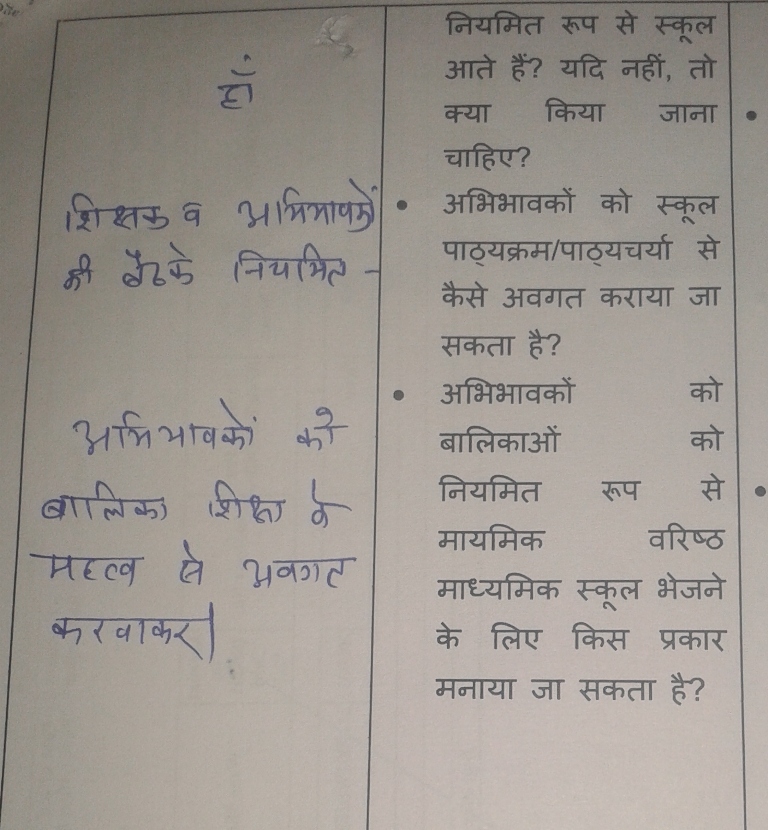 हाँ
शिक्षक व अभिभावकों
की बैठके नियमित -
अभिभावकों को
बालिका शिक्षा के
महत्व से अवगत
करवाकर|
नियमित रूप से स्कूल
आते हैं? यदि नहीं, तो
क्या किया जाना
चाहिए?
• अभिभावकों को स्कूल
पाठ्यक्रम/पाठ्यचर्या से
कैसे अवगत कराया जा
सकता है?
• अभिभावकों को
बालिकाओं को
नियमित रूप से
मायमिक वरिष्ठ
माध्यमिक स्कूल भेजने
के लिए किस प्रकार
मनाया जा सकता है?